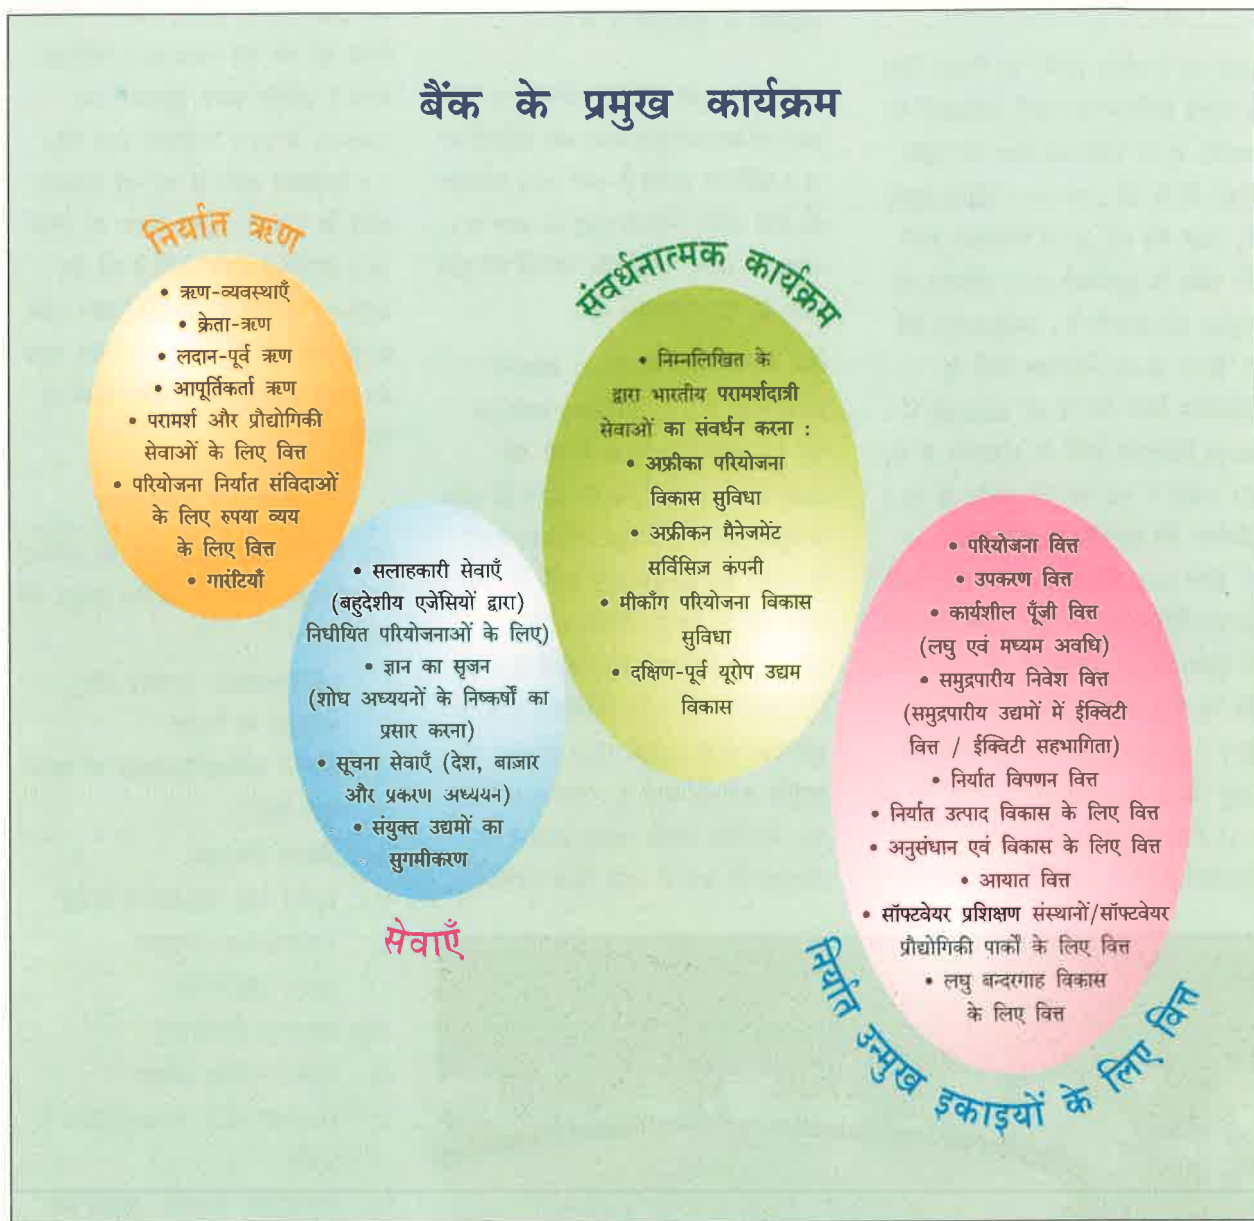 बैंक के प्रमुख कार्यक्रम
निर्यात ऋण
• ऋण-व्यवस्थाएँ
• क्रेता-ऋण
• लदान-पूर्व ऋण
• आपूर्तिकर्ता ऋण
• परामर्श और प्रौद्योगिकी
सेवाओं के लिए वित्त
• परियोजना निर्यात संविदाओं
के लिए रुपया व्यय
के लिए वित्त
• गारंटियाँ
• सलाहकारी सेवाएँ
(बहुदेशीय एजेंसियों द्वारा)
निधीयित परियोजनाओं के लिए)
• ज्ञान का सृजन
(शोध अध्ययनों के निष्कर्षों का
प्रसार करना)
• सूचना सेवाएँ (देश, बाज़ार
और प्रकरण अध्ययन)
• संयुक्त उद्यमों का
सुगमीकरण
सेवाएँ
संवर्धनात्मक कार्यक्रम
• निम्नलिखित के
द्वारा भारतीय परामर्शदात्री
सेवाओं का संवर्धन करना :
• अफ्रीका परियोजना
विकास सुविधा
• अफ्रीकन मैनेजमेंट
सर्विसिज़ कंपनी
• मीकाँग परियोजना विकास
सुविधा
• दक्षिण-पूर्व यूरोप उद्यम
विकास
• परियोजना वित्त
• उपकरण वित्त
• कार्यशील पूँजी वित्त
(लघु एवं मध्यम अवधि)
• समुद्रपारीय निवेश वित्त
(समुद्रपारीय उद्यमों में ईक्विटी
वित्त / ईक्विटी सहभागिता)
• निर्यात विपणन वित्त
• निर्यात उत्पाद विकास के लिए वित्त
• अनुसंधान एवं विकास के लिए वित्त
• आयात वित्त
• सॉफ्टवेयर प्रशिक्षण संस्थानों/सॉफ्टवेयर
प्रौद्योगिकी पार्कों के लिए वित्त
• लघु बन्दरगाह विकास
के लिए वित्त
निर्यात उन्मुख इकाइयों के लिए वित्त